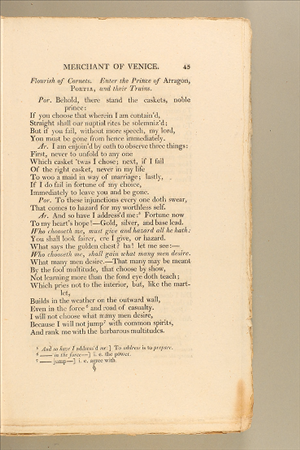 MERCHANT OF VENICE. 45
Flourish of Cornets. Enter the Prince of Arragon,
PORTIA, and their Trains.
Por. Behold, there stand the caskets, noble
prince:
If you choose that wherein I am contain'd,
Straight shall our nuptial rites be solemniz'd;
But if you fail, without more speech, my lord,
You must be gone from hence immediately.
Ar. I am enjoin'd by oath to observe three things:
First, never to unfold to any one
Which casket 'twas I chose; next, if I fail
Of the right casket, never in my life
To woo a maid in way of marriage; lastly,
If I do fail in fortune of my choice,
Immediately to leave you and be gone.
Por. To these injunctions every one doth swear,
That comes to hazard for my worthless self.
Ar. And so have I address'd me:⁵ Fortune now
To my heart's hope!—Gold, silver, and base lead.
Who chooseth me, must give and hazard all he hath:
You shall look fairer, ere I give, or hazard.
What says the golden chest? ha! let me see:—
Who chooseth me, shall gain what many men desire.
What many men desire.—That many may be meant
By the fool multitude, that choose by show,
Not learning more than the fond eye doth teach;
Which pries not to the interior, but, like the mart-
let,
Builds in the weather on the outward wall,
Even in the force⁶ and road of casualty.
I will not choose what many men desire,
Because I will not jump⁷ with common spirits,
And rank me with the barbarous multitudes.
⁵ And so have I address'd me:] To address is to prepare.
⁶ —— in the force—] i. e. the power.
⁷ —— jump—] i. e. agree with.